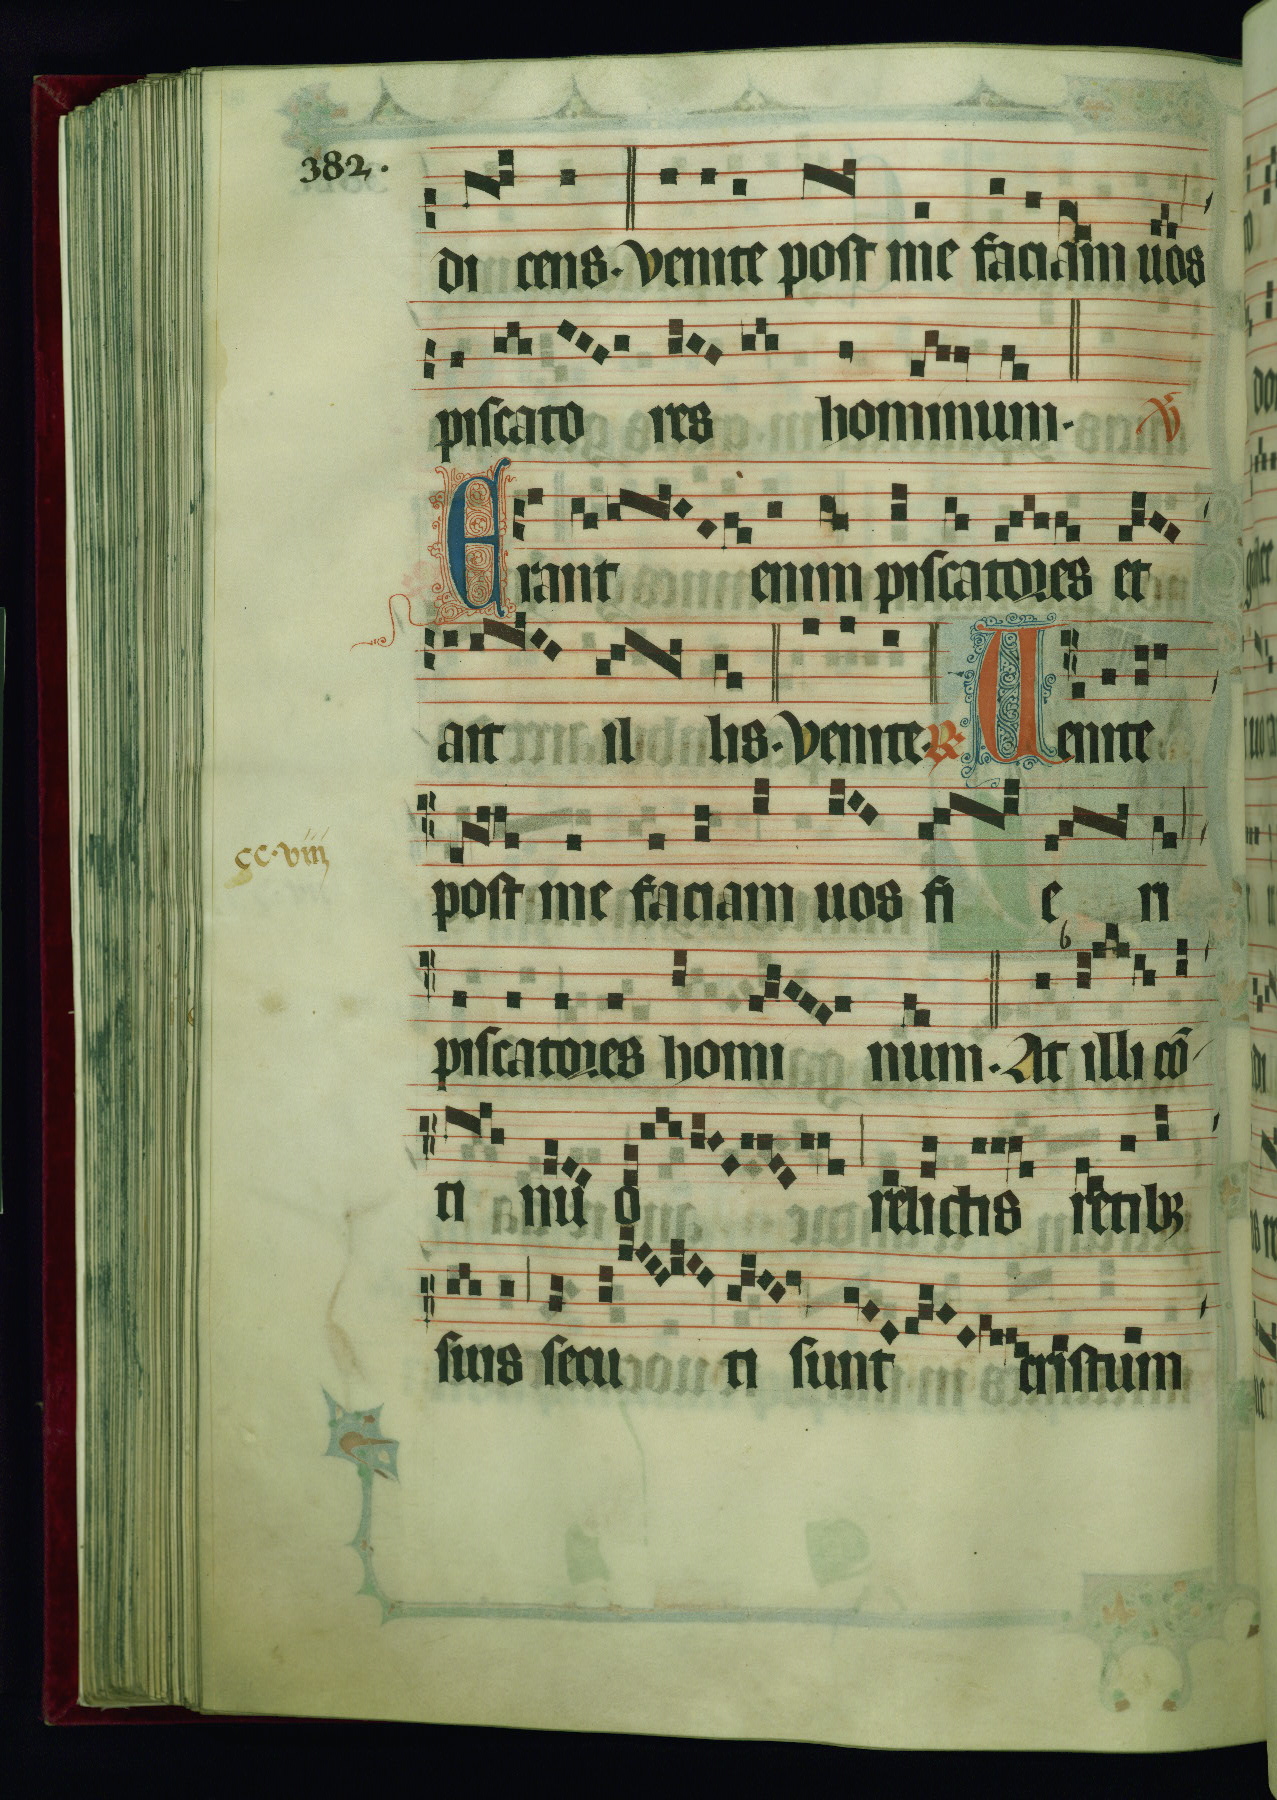 382.
di cens. Venite post me faciam uos
piscato res hominum. V
Erant enim piscatores et
ait il lis. Venite. R Uenite
cc.viii
post me faciam uos fi e ri
piscatores homi num. At illi cō
ti nu o relictis retibꝫ
suis secu ti sunt cristum